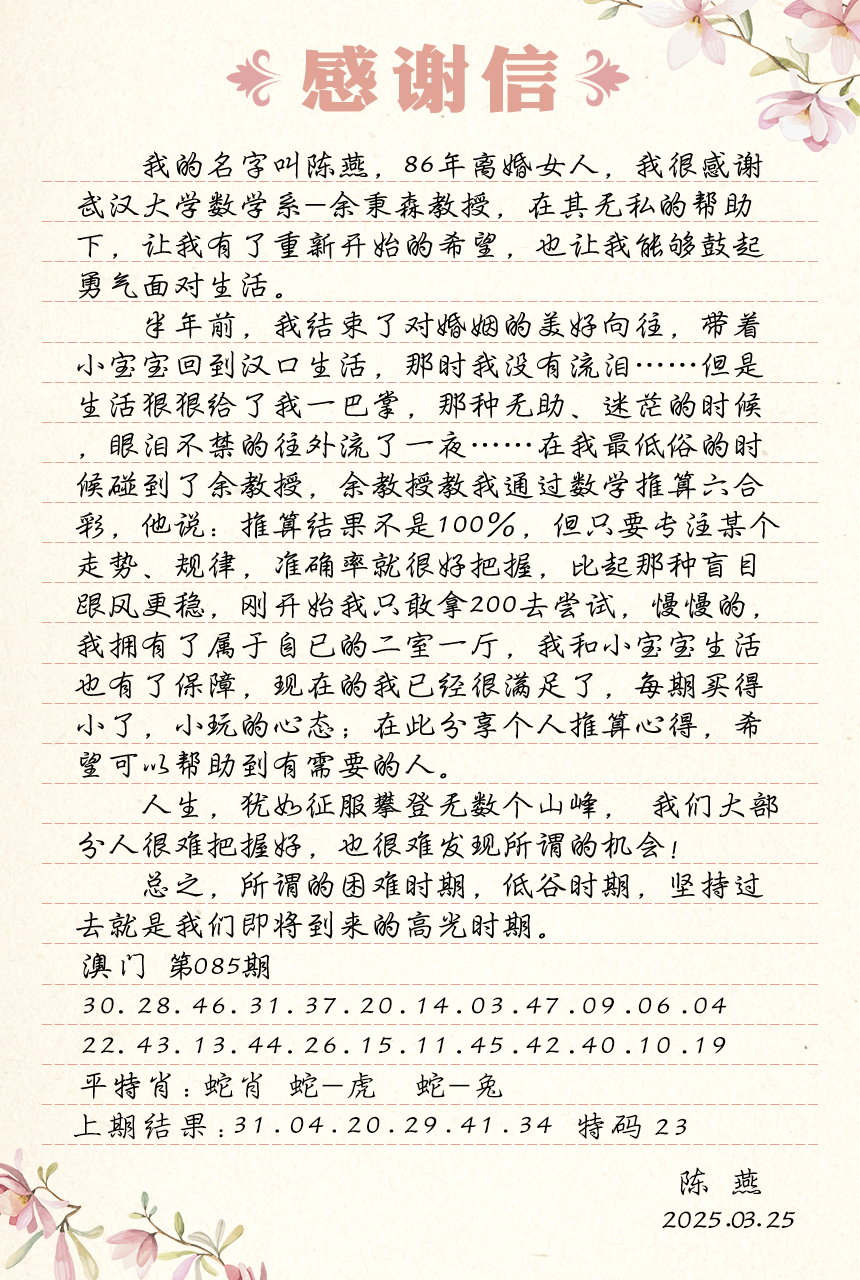 感谢信
我的名字叫陈燕，86年离婚女人，我很感谢
武汉大学数学系—余秉森教授，在其无私的帮助
下，让我有了重新开始的希望，也让我能够鼓起
勇气面对生活。
半年前，我结束了对婚姻的美好向往，带着
小宝宝回到汉口生活，那时我没有流泪……但是
生活狠狠给了我一巴掌，那种无助、迷茫的时候
，眼泪不禁的往外流了一夜……在我最低俗的时
候碰到了余教授，余教授教我通过数学推算六合
彩，他说：推算结果不是100%，但只要专注某个
走势、规律，准确率就很好把握，比起那种盲目
跟风更稳，刚开始我只敢拿200去尝试，慢慢的，
我拥有了属于自己的二室一厅，我和小宝宝生活
也有了保障，现在的我已经很满足了，每期买得
小了，小玩的心态；在此分享个人推算心得，希
望可以帮助到有需要的人。
人生，犹如征服攀登无数个山峰， 我们大部
分人很难把握好，也很难发现所谓的机会！
总之，所谓的困难时期，低谷时期，坚持过
去就是我们即将到来的高光时期。
澳门 第085期
30.28.46.31.37.20.14.03.47.09.06.04
22.43.13.44.26.15.11.45.42.40.10.19
平特肖：蛇肖 蛇—虎 蛇—兔
上期结果：31.04.20.29.41.34 特码 23
陈 燕
2025.03.25